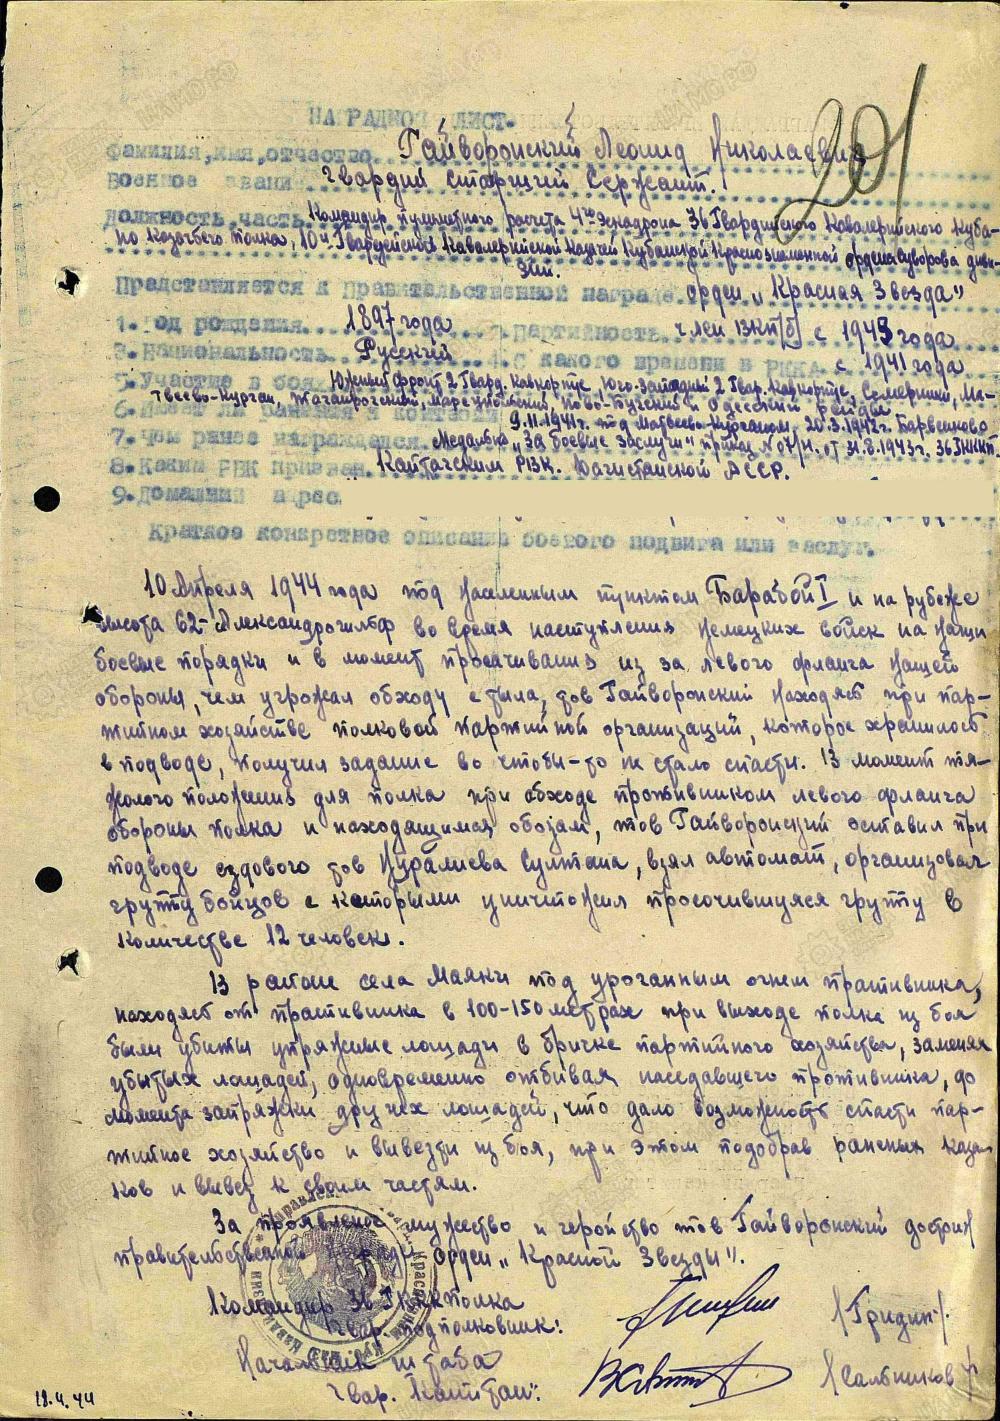 201
НАГРАДНОЙ ЛИСТ.
Фамилия, имя, отчество Гайворонский Леонид Николаевич
Военное звание гвардии старший сержант.
Должность, часть Командир пулеметного расчета 4го эскадрона 36 Гвардейского Кавалерийского Куба-
но Казачьего полка, 10й Гвардейской Кавалерийской Казачей Кубанской Краснознаменной ордена Суворова диви-
зии.
Представляется к Правительственной награде орден „Красная Звезда"
1. Год рождения 1897 года 2. Партийность член ВКП/б/ с 1943 года
3. Национальность Русский 4. С какого времени в РККА с 1941 года
5. Участие в боях Южный фронт 2 Гвард. Кавкорпус, Юго-Западный 2 Гвар. Кавкорпус, Ма-
твеево-Курган, Таганрогский, Ново-Бугский и Одесский рейды
6. Имеет ли ранения и контузии 9.11.1941г. под Матвеев-Курганом, 20.3.1942г. Барвенково
7. Чем ранее награждался Медалью „За боевые заслуги" приказ №07/Н. от 31.8.1943г. 36 ГККП.
8. Каким РВК призван Кайтагским РВК. Дагистанской АССР.
9. Домашний адрес
Краткое конкретное описание боевого подвига или заслуг.
10 Апреля 1944 года под населенным пунктом Барабой I и на рубеже
высота 62-Александрогильф во время наступления немецких войск на наши
боевые порядки и в момент просачивания из за левого фланга нашей
обороны, чем угрожал обходу с тыла, тов Гайворонский находясь при пар-
тийном хозяйстве полковой партийной организаций, которое хранилось
в подводе, получил задание во чтобы-то не стало спасти. В момент тя-
жолого положения для полка при обходе противником левого фланга
обороны полка и находящимся обозам, тов Гайворонский оставил при
подводе ездового тов Нуралиева Султана, взял автомат, организовал
группу бойцов с которыми уничтожил просочившуюся группу в
количестве 12 человек.
В районе села Маяки под ураганным огнем противника,
находясь от противника в 100-150 метрах при выходе полка из боя
были убиты упряжные лошади в бричке партийного хозяйства, заменяя
убытых лошадей, одновременно отбивая наседавшего противника, до
момента запряжки других лошадей, что дало возможность спасти пар-
тийное хозяйство и вывезти из боя, при этом подобрав раненых каза-
ков и вывез к своим частям.
За проявленое мужество и геройство тов Гайворонский достоин
правительственной награды орден „Красной Звезды".
Командир 36 ГККК полка
гвар. подполковник: /Гридин/.
Начальник штаба
гвар. Капитан: /Сальников/
18.4.44